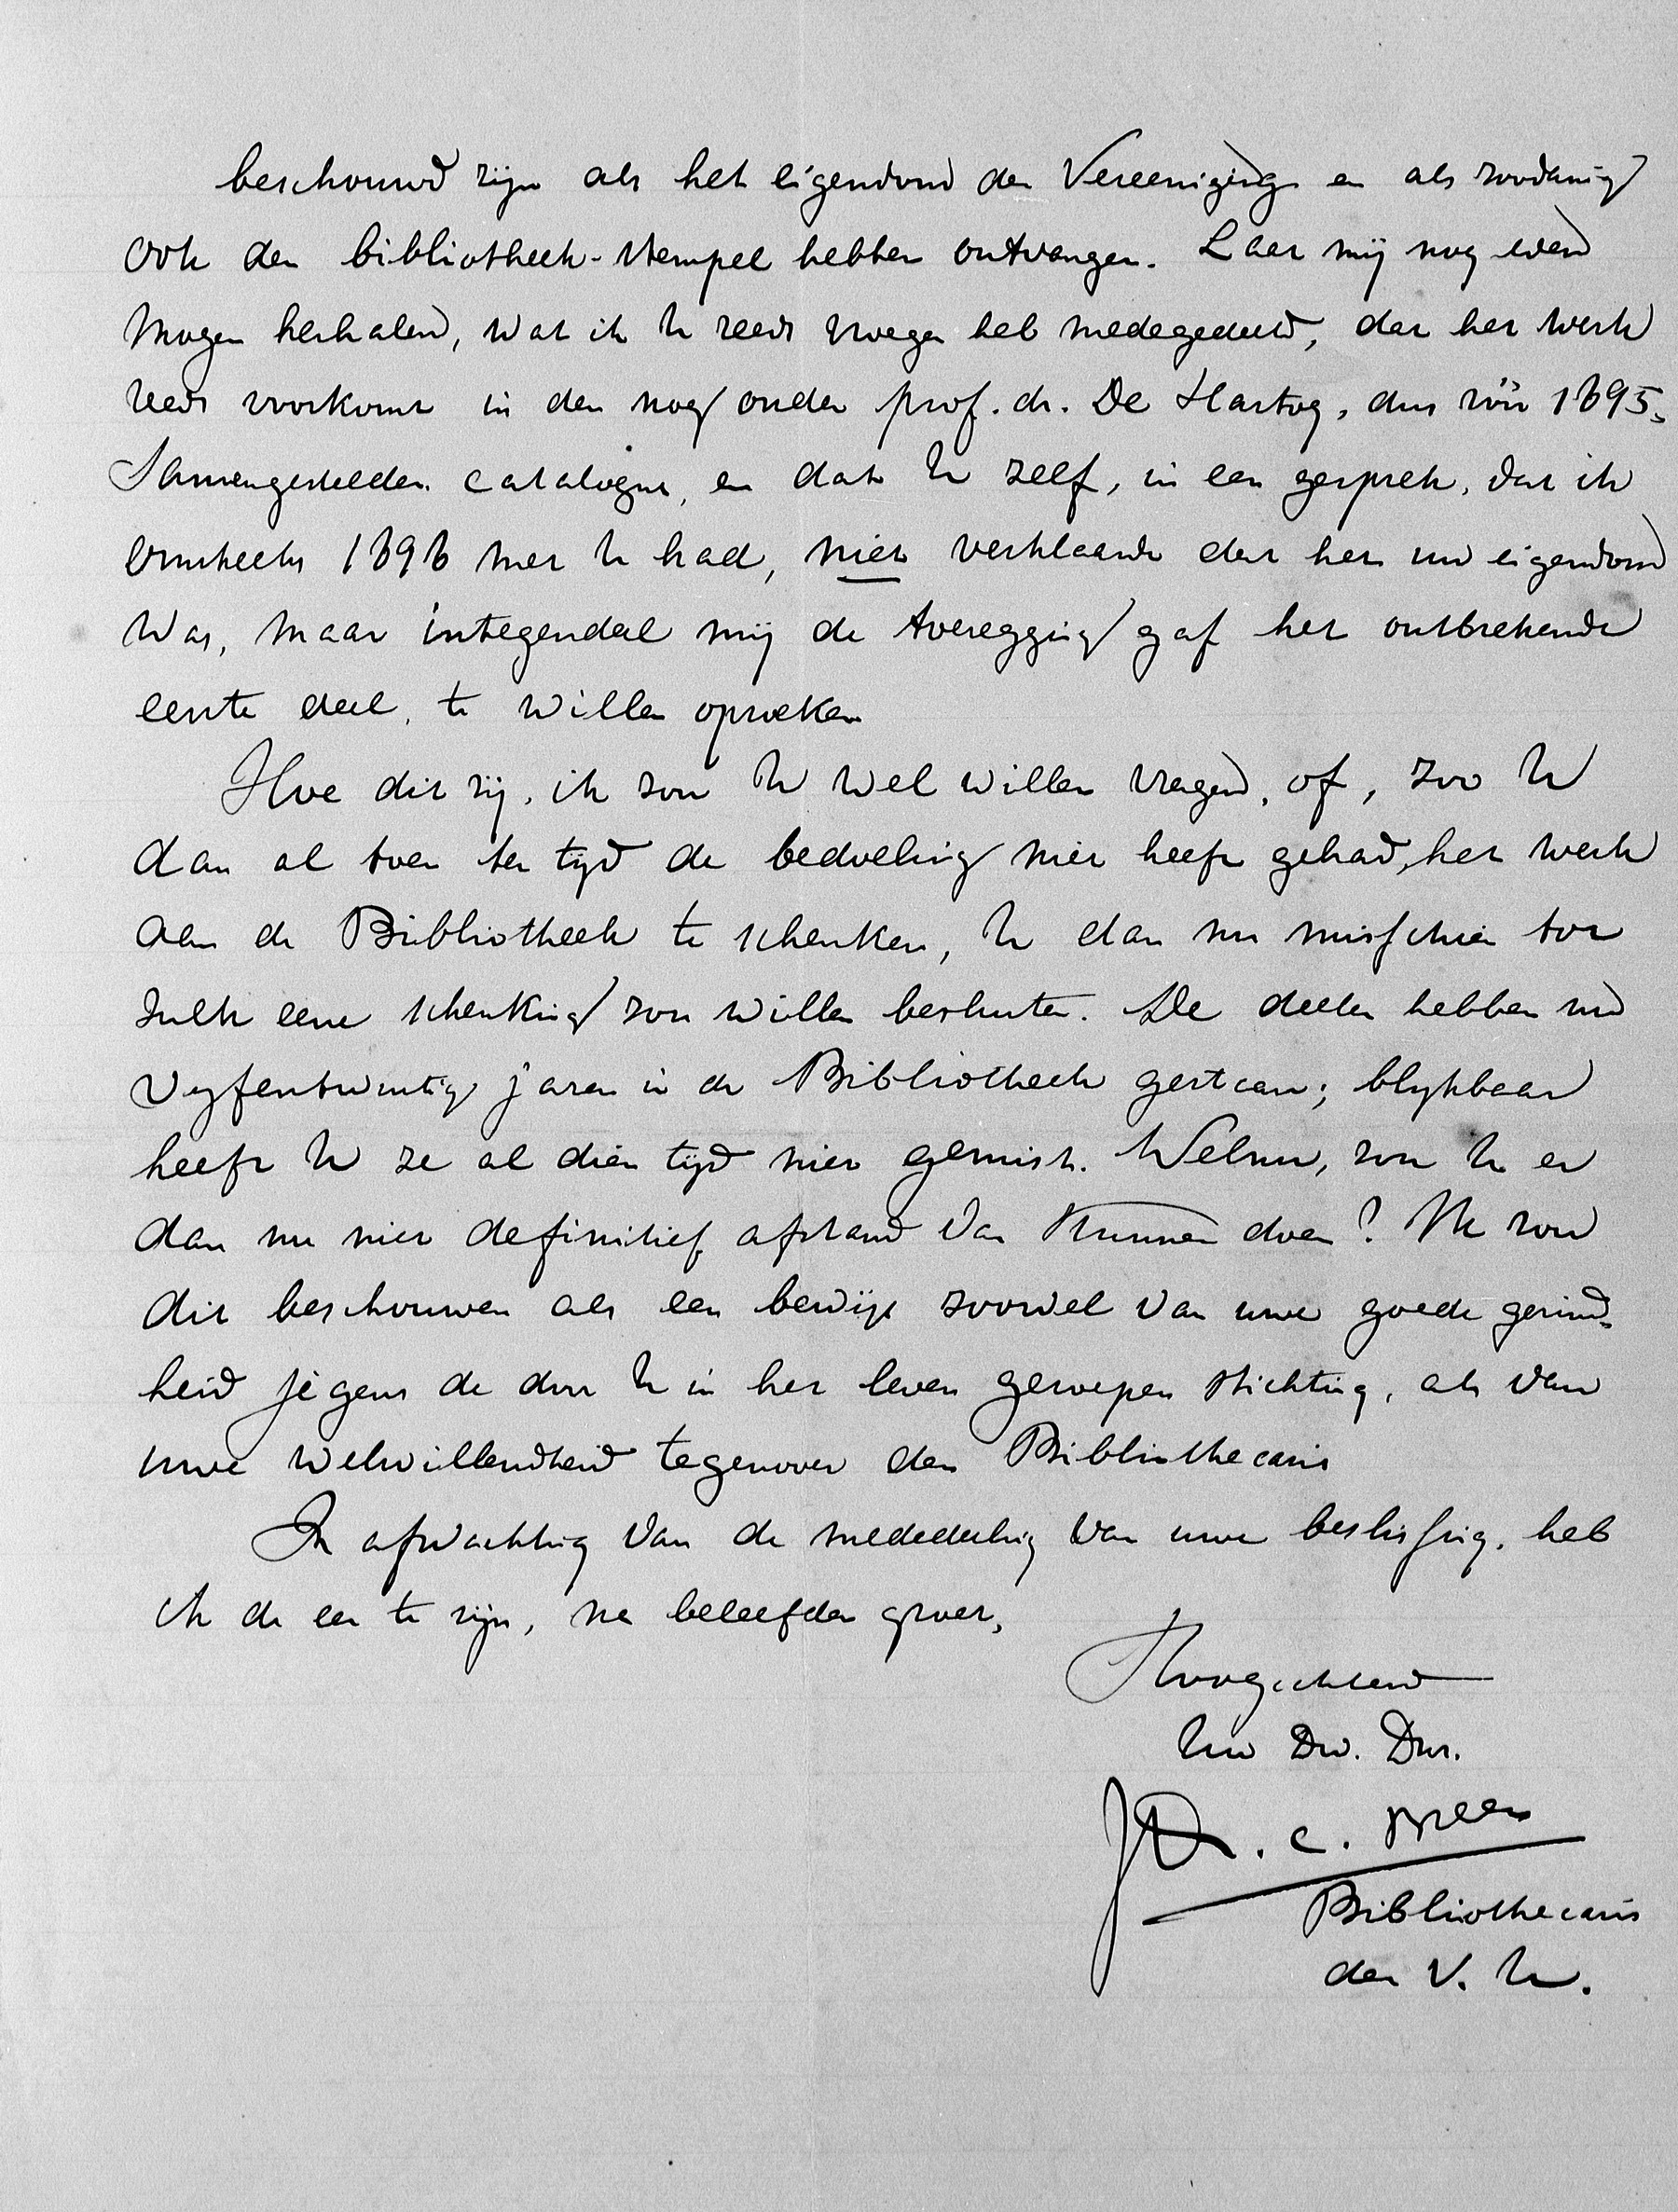 beschouwd zijn als het eigendom der Vereeniging en als zoodanig
ook den bibliotheek-stempel hebben ontvangen. Laat mij nog even
mogen herhalen, wat ik U reeds vroeger heb medegedeeld, dat het werk
reeds voorkomt in den nog onder prof. dr. De Hartog, dus vóór 1895,
samengestelden catalogus, en dat U zelf, in een gesprek, dat ik
omstreeks 1898 met U had, niet verklaarde dat het uw eigendom
was, maar integendeel mij de toezegging gaf het ontbrekende
eerste deel, te willen opzoeken
Hoe dit zij, ik zou U wel willen vragen, of, zoo U
dan al toen ter tijd de bedoeling niet heeft gehad, het werk
aan de Bibliotheek te schenken, U dan nu misschien tot
zulk eene schenking zou willen besluiten. De deelen hebben nu
vyfentwintig jaren in de Bibliotheek gestaan; blykbaar
heeft U ze al dien tijd niet gemist. Welnu, zou U er
dan nu niet definitief afstand van kunnen doen? Ik zou
dit beschouwen als een bewijs zoowel van uwe goede gezind-
heid jegens de door U in het leven geroepen stichting, als van
uwe welwillendheid tegenover den Bibliothecaris
In afwachting van de mededeeling van uwe beslissing, heb
ik de eer te zijn, na beleefden groet,
Hoogachtend
Uw Dw. Dnr.
J. C. Breen
Bibliothecaris
der V. U.